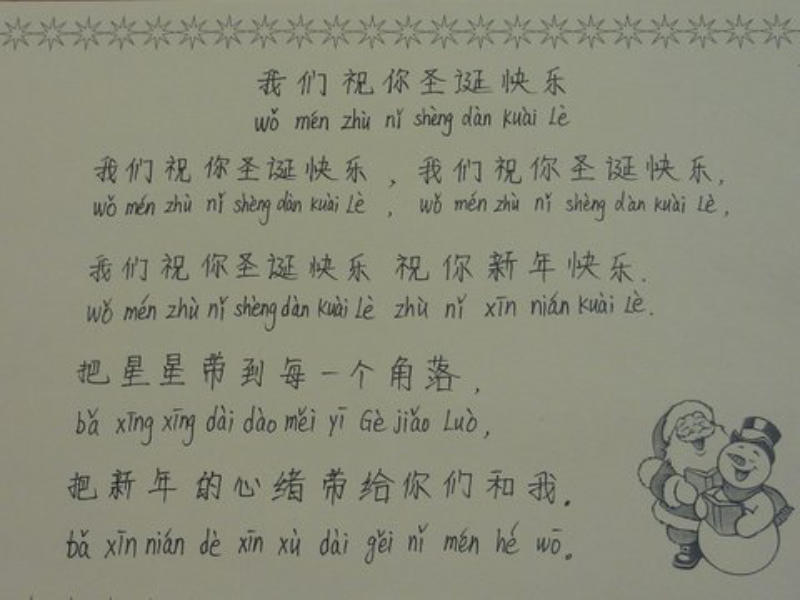 我们祝你圣诞快乐
wǒ mén zhù nǐ shèng dàn kuài Lè
我们祝你圣诞快乐，我们祝你圣诞快乐，
wǒ mén zhù nǐ shèng dàn kuài Lè ， wǒ mén zhù nǐ shèng dàn kuài Lè ，
我们祝你圣诞快乐 祝你新年快乐.
wǒ mén zhù nǐ shèng dàn kuài Lè zhù nǐ xīn nián kuài Lè.
把星星带到每一个角落，
bǎ xīng xīng dài dào měi yī Gè jiǎo Luò,
把新年的心绪带给你们和我.
bǎ xīn nián dè xīn xù dài gěi nǐ mén hé wō.